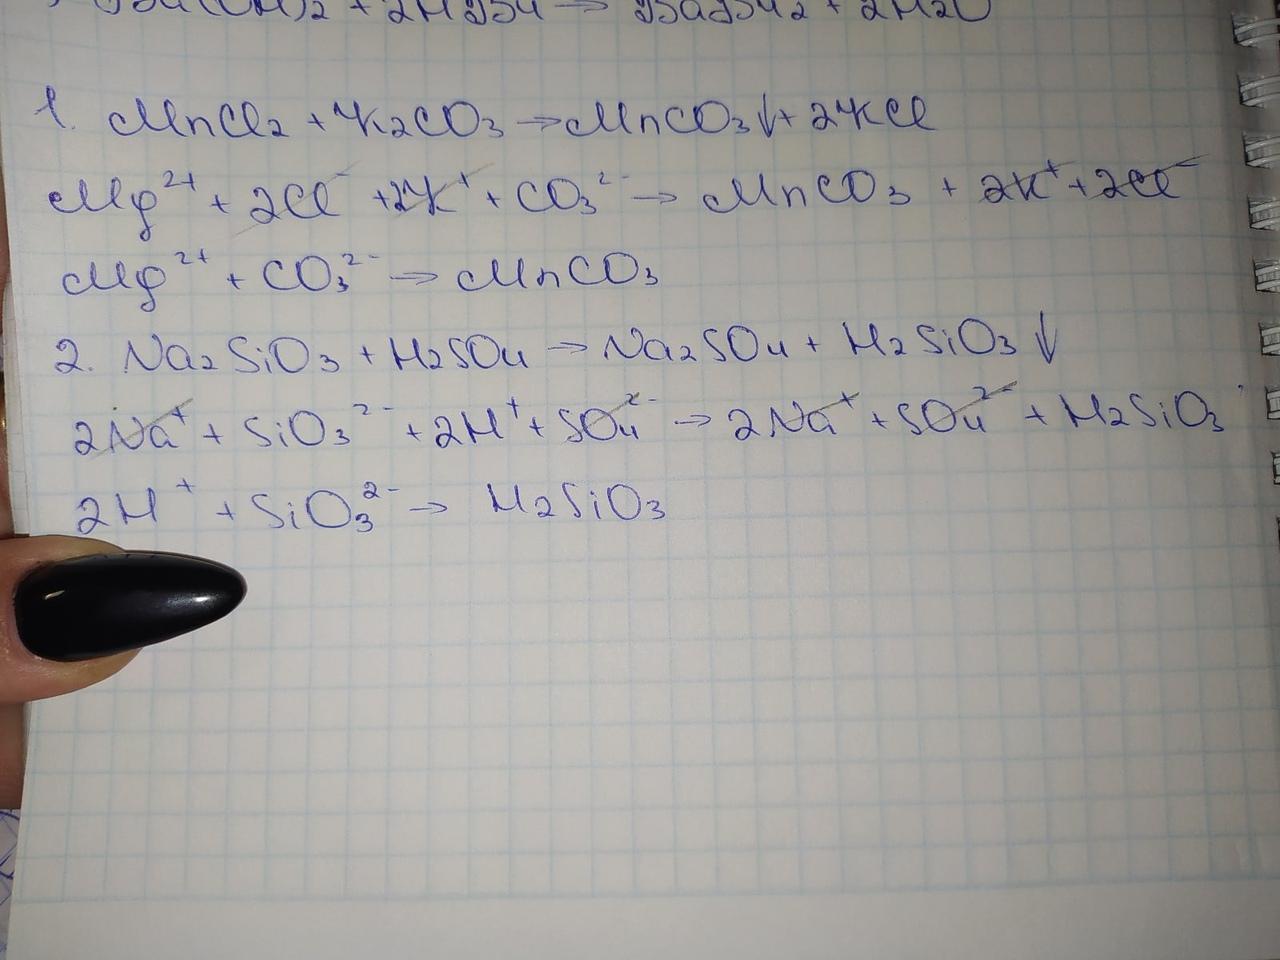 1. MnCl2 + K2CO3 → MnCO3↓ + 2KCl
Mg²⁺ + 2Cl⁻ + 2K⁺ + CO3²⁻ → MnCO3 + 2K⁺ + 2Cl⁻
Mg²⁺ + CO3²⁻ → MnCO3
2. Na2SiO3 + H2SO4 → Na2SO4 + H2SiO3↓
2Na⁺ + SiO3²⁻ + 2H⁺ + SO4²⁻ → 2Na⁺ + SO4²⁻ + H2SiO3
2H⁺ + SiO3²⁻ → H2SiO3